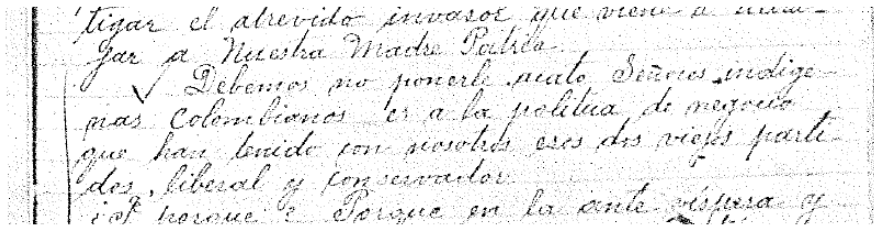 tigar el atrevido invasor que viene a ultra-
jar a Nuestra Madre Patria.
Debemos no ponerle acato Señores indige-
nas Colombianos es a la politica de negocio
que han tenido con nosotros esos dos viejos parti-
dos, liberal y conservador.
porque? Porque en la ante víspera y